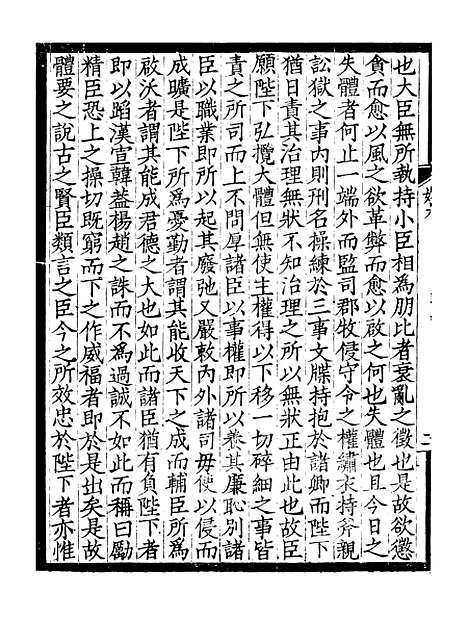 也大臣無所執持小臣相為朋比者衰亂之徵也是故欲懲
貪而愈以風之欲革弊而愈以啟之何也失體也且今日之
失體者何止一端外而監司郡牧侵守令之權繡衣持斧親
訟獄之事內則刑名操練於三事文牒持抱於諸卿而陛下
猶日責其治理無狀不知治理之所以無狀正由此也故臣
願陛下弘攬大體但無使主權得以下移一切碎細之事皆
責之所司而上不問厚諸臣以事權即所以養其廉恥別諸
臣以職業即所以起其廢弛又嚴敕內外諸司毋使以侵而
成曠是陛下所為憂勤者謂其能收天下之成而輔臣所為
啟沃者謂其能成君德之大也如此而諸臣猶有負陛下者
即以蹈漢宣韓蓋楊趙之誅而不為過誠不如此而稱曰勵
精臣恐上之操切既窮而下之作威福者即於是出矣是故
體要之說古之賢臣類言之臣今之所效忠於陛下者亦惟